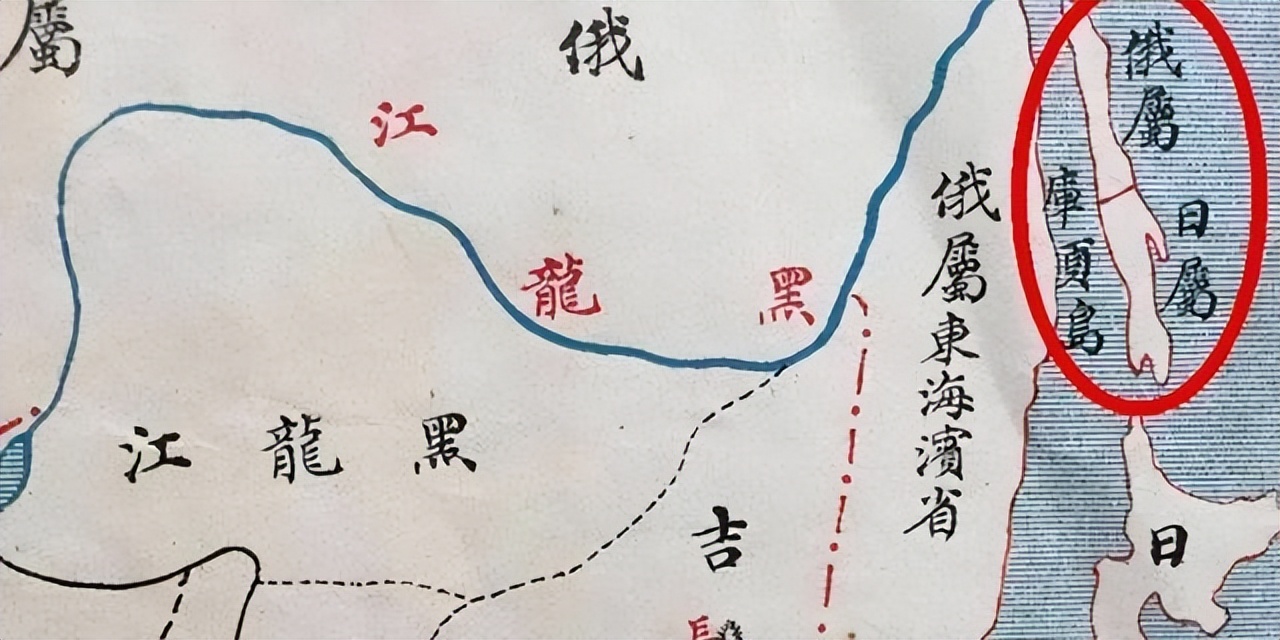 俄屬
俄屬
日屬
庫頁島
俄屬東海濱省
黑龍江
黑龍江
吉
日